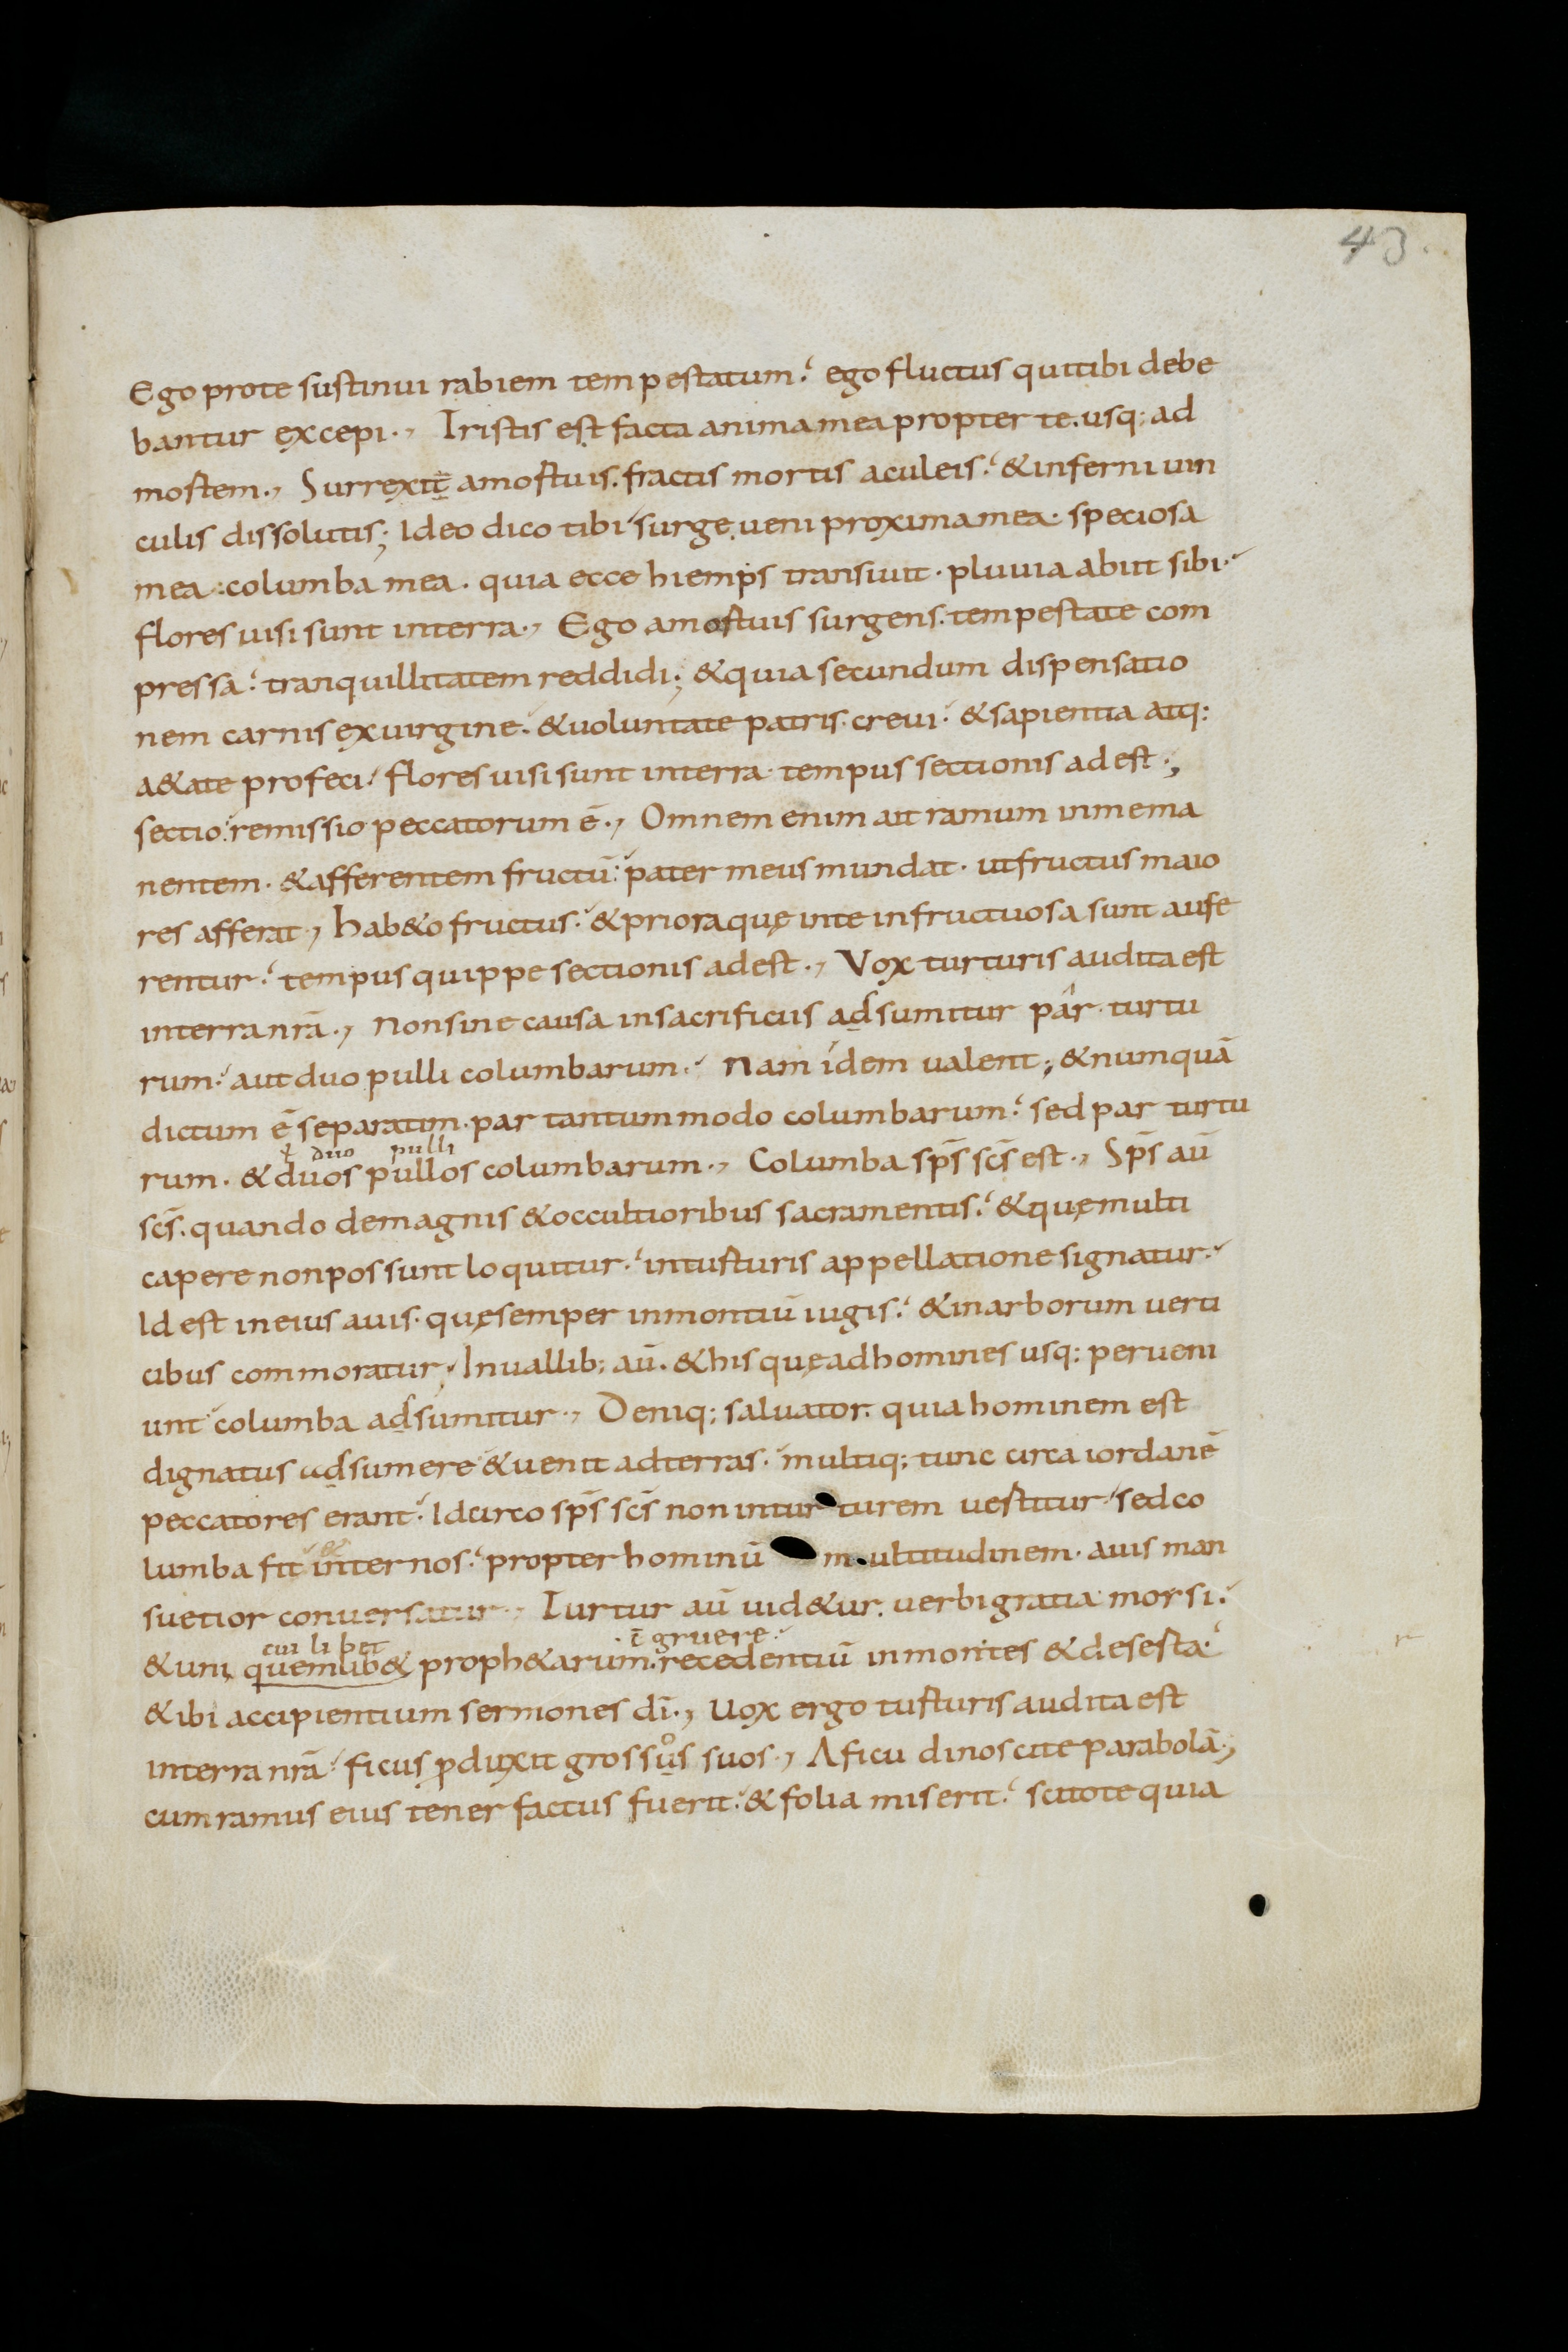 43.
Ego prote sustinui rabiem tempestatum. ego fluctus qui tibi debe
bantur excepi., Tristis est facta anima mea propter te. usq; ad
mortem., Surrexit̄ amortuis. fractis mortis aculeis. & inferni uin
culis dissolutis; Ideo dico tibi surge, ueni proxima mea. speciosa
mea: columba mea. quia ecce hiemps transiuit. pluuia abiit sibi.
flores uisi sunt interra., Ego amortuis surgens. tempestate com
pressa. tranquillitatem reddidi; & quia secundum dispensatio
nem carnis exuirgine. & uoluntate patris. creui. & sapientia atq:
a&ate profeci. flores uisi sunt interra. tempus sectionis adest.,
sectio. remissio peccatorum ē., Omnem enim ait ramum inmema
nentem. & afferentem fructū: pater meus mundat. ut fructus maio
res afferat., hab&o fructus. & priora quę inte infructuosa sunt aufe
rentur. tempus quippe sectionis adest., Vox turturis audita est
interra nrā., Non sine causa insacrificiis adsumitur par turtu
rum. aut duo pulli columbarum. Nam idem ualent; & numquā
dictum ē separatim. par tantummodo columbarum. sed par turtu
ł duo pulli
rum. & duos pullos columbarum., Columba sp̄s sc̄s est., Sp̄s aū
sc̄s. quando demagnis & occultioribus sacramentis. & quę multi
capere non possunt loquitur. inturturis appellatione signatur.
Id est in eius auis. quę semper inmontiū iugis. & inarborum uerti
cibus commoratur, Inuallib; aū. & his quę adhomines usq: perueni
unt columba adsumitur., Deniq; saluator. quia hominem est
dignatus adsumere & uenit adterras. multiq; tunc circa iordanē
peccatores erant. Idcirco sp̄s sc̄s non intur turem uestitur. sed co
lumba fit inter nos. propter hominū multitudinem. auis man
suetior conuersatur., Turtur aū uid&ur. uerbi gratia morsi.
cui libet ē gruere.
& uni quemlib& proph&arum. recedentiū inmontes & desesta.
& ibi accipientium sermones dī., Uox ergo turturis audita est
interra nrā. ficus ꝓduxit grossůs suos., Aficu dinoscite parabolā.,
cum ramus eius tener factus fuerit. & folia miserit. scitote quia